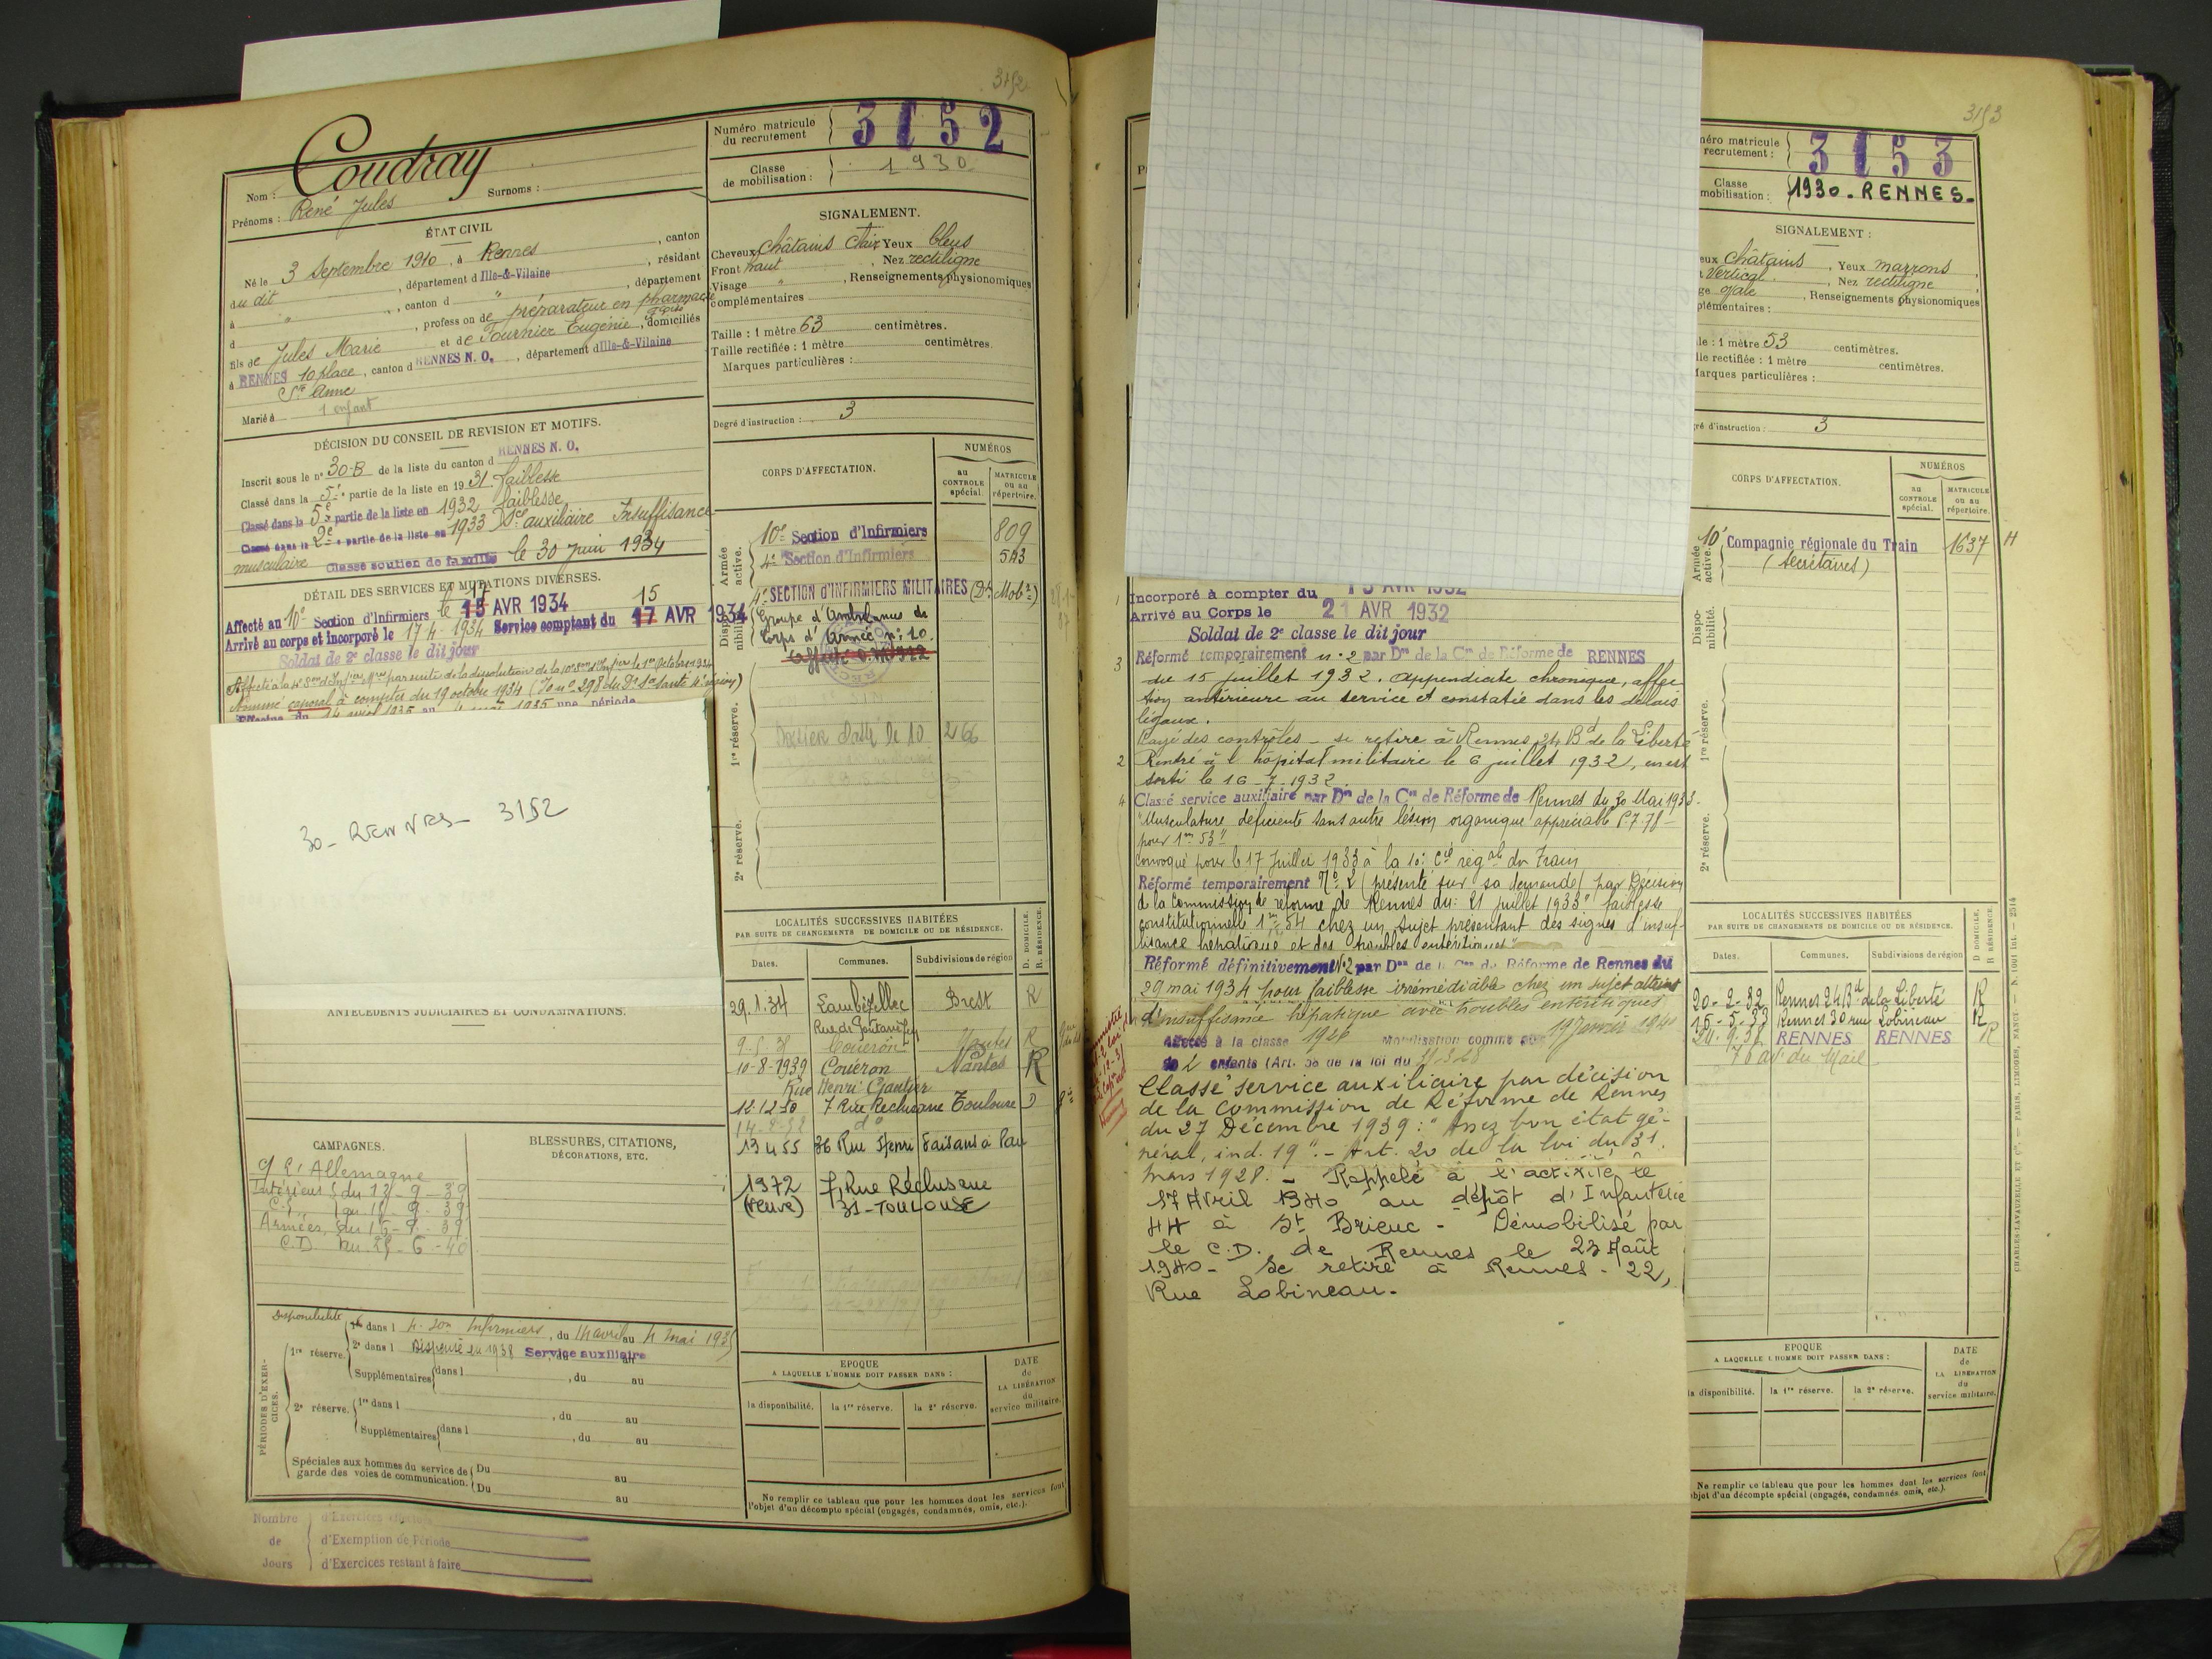 3152
Nom : Coudray
Surnoms :
Prénoms : René Jules
ÉTAT CIVIL
Né le 3 Septembre 1910, à Rennes, canton
du dit, département d Ille-&-Vilaine, résidant
à " , canton d " , département
d , profession de préparateur en pharmacie
fils de Jules Marie et de Fournier Eugénie, domiciliés
à RENNES 10 place, canton d RENNES N. O., département d Ille-&-Vilaine
Ste Anne
Marié à 1 enfant
DÉCISION DU CONSEIL DE REVISION ET MOTIFS.
Inscrit sous le n° 30-B de la liste du canton d RENNES N. O.
Classé dans la 5e partie de la liste en 1931. faiblesse
Classé dans la 5e partie de la liste en 1932 faiblesse
Classé dans la 2e partie de la liste en 1933 Sce auxiliaire Insuffisance
musculaire Classé soutien de famille le 30 juin 1934
DÉTAIL DES SERVICES ET MUTATIONS DIVERSES.
17 15
Affecté au 10e Section d'Infirmiers le 15 AVR 1934
Arrivé au corps et incorporé le 17-4-1934 Service comptant du 17 AVR 1934
Soldat de 2e classe le dit jour
par suite de la dissolution de la 10e le 1er Octobre 1934
Nommé caporal à compter du 19 octobre 1934
30 - RENNES - 3152
ANTÉCÉDENTS JUDICIAIRES ET CONDAMNATIONS.
CAMPAGNES.
C/ l'Allemagne
Intérieur du 12-9-39
Armées, du 15-9-39
BLESSURES, CITATIONS,
DÉCORATIONS, ETC.
PÉRIODES D'EXERCICES.
Disponibilité
1re réserve. 1re dans l 4. Son Infirmiers, du 14 avril au 4 mai 1935
2e dans l Dispensé en 1938 Service auxiliaire
Supplémentaires dans l , du au
2e réserve. 1re dans l , du au
Supplémentaires dans l , du au
Spéciales aux hommes du service de
garde des voies de communication.
Du au
Du au
Nombre
de
Jours
d'Exercices effectués
d'Exemption de Période
d'Exercices restant à faire
Numéro matricule
du recrutement
3152
Classe
de mobilisation : 1930
SIGNALEMENT.
Cheveux Châtains clair Yeux bleus
Front haut, Nez rectiligne
Visage " , Renseignements physionomiques
complémentaires
Taille : 1 mètre 63 centimètres.
Taille rectifiée : 1 mètre centimètres.
Marques particulières :
Degré d'instruction : 3
CORPS D'AFFECTATION.
NUMÉROS
au
CONTROLE
spécial.
MATRICULE
ou au
répertoire.
Armée
active.
10e Section d'Infirmiers 809
4e Section d'Infirmiers 543
Disponibilité.
4e SECTION d'INFIRMIERS MILITAIRES (Dt Mobre)
Groupe d'Ambulances de
Corps d'Armée n° 10.
1re réserve.
266
2e réserve.
LOCALITÉS SUCCESSIVES HABITÉES
PAR SUITE DE CHANGEMENTS DE DOMICILE OU DE RÉSIDENCE.
D. DOMICILE.
R. RÉSIDENCE.
Dates. Communes. Subdivisions de région
29.1.34 Lambézellec Brest R
Couëron Nantes R
10-8-1939 Couëron Nantes R
Rue Henri Gautier
12.12.50 7 Rue Reclusane Toulouse D
13 4 55 36 Rue Henri Faisans à Pau
1972 7, Rue Réclusane
(veuve) 31-TOULOUSE
EPOQUE
A LAQUELLE L'HOMME DOIT PASSER DANS :
la disponibilité. la 1re réserve. la 2e réserve.
DATE
de
LA LIBÉRATION
du
service militaire.
Ne remplir ce tableau que pour les hommes dont les services font
l'objet d'un décompte spécial (engagés, condamnés, omis, etc.).
3153
Incorporé à compter du
Arrivé au Corps le 21 AVR 1932
Soldat de 2e classe le dit jour
3 Réformé temporairement n° 2 par Don de la Con de Réforme de RENNES
du 15 juillet 1932. Appendicite chronique, affec
tion antérieure au service et constatée dans les délais
légaux.
Rayé des contrôles - se retire à Rennes, 24 Bd de la Liberté
2 Rentré à l'hôpital militaire le 6 juillet 1932, en est
sorti le 16-7-1932.
4 Classé service auxiliaire par Don de la Con de Réforme de Rennes du 30 Mai 1933.
"Musculature déficiente sans autre lésion organique appréciable P.7.78-
pour 1m 53"
Convoqué pour le 17 Juillet 1933 à la 10e Cie régale du Train
Réformé temporairement N° 2 (présenté sur sa demande) par Décision
de la Commission de réforme de Rennes du: 21 juillet 1933 "faiblesse
constitutionnelle 1m 54 chez un sujet présentant des signes d'insuf-
fisance hépatique et des troubles entéritiques"
Réformé définitivement N° 2 par Don de la Con de Réforme de Rennes du
29 mai 1934 pour faiblesse irrémédiable chez un sujet atteint
d'insuffisance hépatique avec troubles entéritiques
Affecté à la classe 1926 Mobilisation comme père 19 Janvier 1940
de 2 enfants (Art. 58 de la loi du 31.3.28
Classé service auxiliaire par décision
de la Commission de Réforme de Rennes
du 27 Décembre 1939 : "Assez bon état gé-
néral, ind. 19". - Art. 20 de la loi du 31
mars 1928. - Rappelé à l'activité le
17 Avril 1940 au dépôt d'Infanterie
44 à St Brieuc - Démobilisé par
le C.D. de Rennes le 23 Août
1940 - Se retire à Rennes - 22,
Rue Lobineau.
méro matricule
recrutement :
3153
Classe
mobilisation : 1930 - RENNES -
SIGNALEMENT :
eux Châtains, Yeux marrons,
Vertical, Nez rectiligne
ge ovale, Renseignements physionomiques
plémentaires :
le : 1 mètre 53 centimètres.
lle rectifiée : 1 mètre centimètres.
arques particulières :
ré d'instruction : 3
CORPS D'AFFECTATION.
NUMÉROS
au
CONTROLE
spécial.
MATRICULE
ou au
répertoire.
Armée
active.
10e Compagnie régionale du Train 1637 H
(secrétaires)
Disponibilité.
1re réserve.
2e réserve.
LOCALITÉS SUCCESSIVES HABITÉES
PAR SUITE DE CHANGEMENTS DE DOMICILE OU DE RÉSIDENCE.
D. DOMICILE.
R. RÉSIDENCE.
Dates. Communes. Subdivisions de région
20-2-32 Rennes 24 Bd de la Liberté R
15-5-33 Rennes 30 rue Lobineau R
RENNES RENNES R
76 av. du Mail
EPOQUE
A LAQUELLE L'HOMME DOIT PASSER DANS :
la disponibilité. la 1re réserve. la 2e réserve.
DATE
de
LA LIBÉRATION
du
service militaire.
Ne remplir ce tableau que pour les hommes dont les services font
objet d'un décompte spécial (engagés, condamnés, omis, etc.).
CHARLES-LAVAUZELLE ET Cie. — PARIS, LIMOGES, NANCY — N. 1001 Int. — 2514